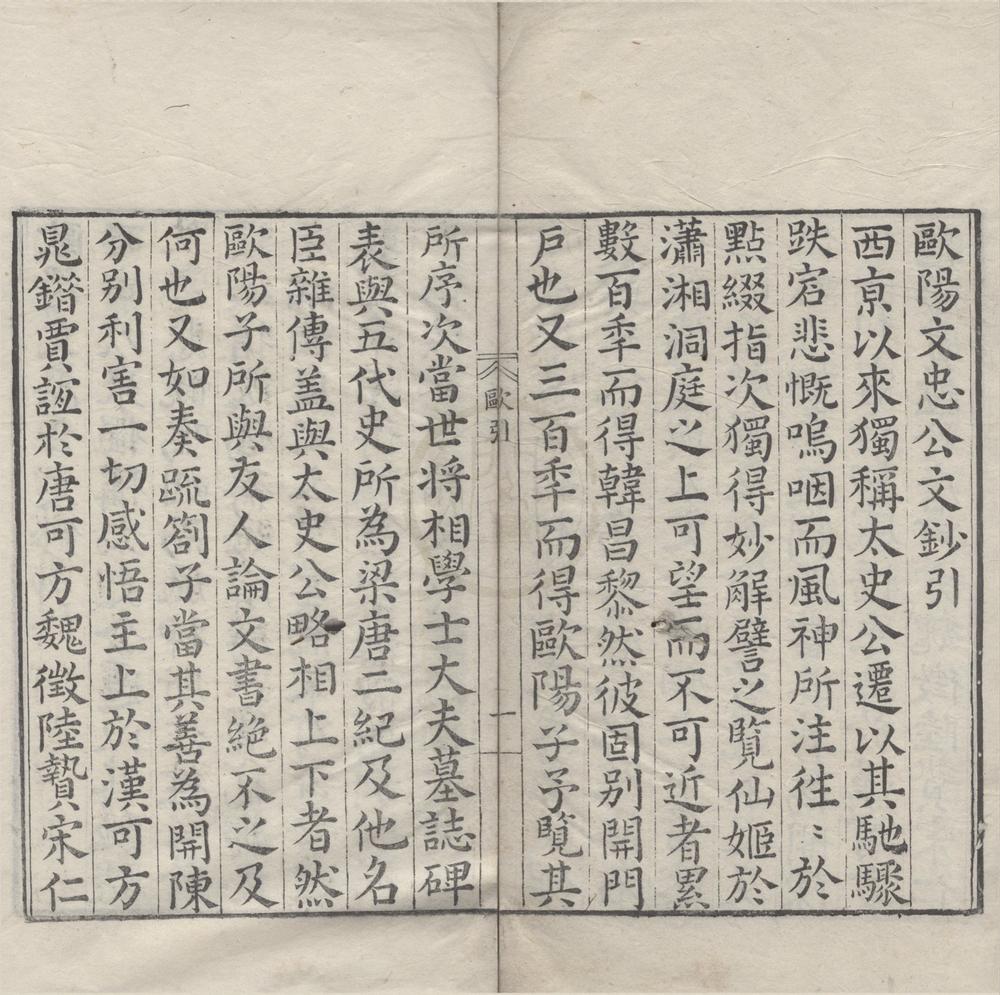 歐陽文忠公文鈔引
西京以來獨稱太史公遷以其馳驟
跌宕悲慨嗚咽而風神所注往〻於
點綴指次獨得妙解譬之覽仙姬於
瀟湘洞庭之上可望而不可近者累
數百秊而得韓昌黎然彼固别開門
戶也又三百秊而得歐陽子予覽其
歐引
一
所序次當世将相學士大夫墓誌碑
表與五代史所為梁唐二紀及他名
臣雜傳盖與太史公略相上下者然
歐陽子所與友人論文書絶不之及
何也又如奏疏劄子當其善為開陳
分别利害一切感悟主上於漢可方
晁鐕賈誼於唐可方魏徵陸贄宋仁